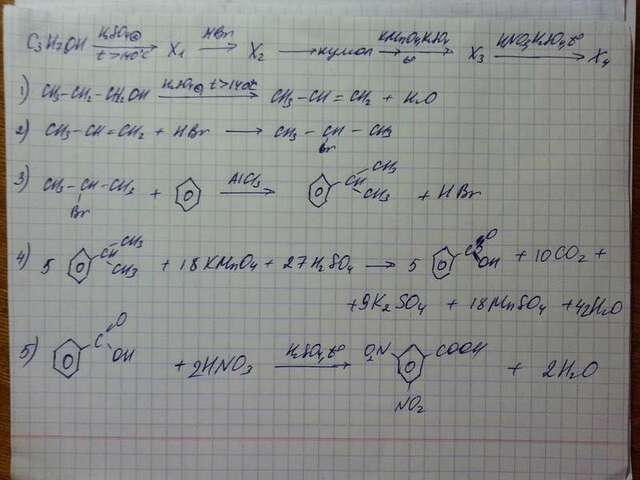 C₃H₇OH —H₂SO₄(к), t>140°C→ X₁ —HBr→ X₂ → кумол —KMnO₄, H₂SO₄, t°→ X₃ —HNO₃, H₂SO₄, t°→ X₄
1) CH₃-CH₂-CH₂OH —H₂SO₄(к), t>140°C→ CH₃-CH=CH₂ + H₂O
2) CH₃-CH=CH₂ + HBr → CH₃-CH-CH₃
Br
3) CH₃-CH-CH₃ + —AlCl₃→ CH CH₃ CH₃ + HBr
Br
4) 5 CH CH₃ CH₃ + 18KMnO₄ + 27H₂SO₄ → 5 C O OH + 10CO₂ +
+ 9K₂SO₄ + 18MnSO₄ + 42H₂O
5) C O OH + 2HNO₃ —H₂SO₄, t°→ O₂N COOH + 2H₂O
NO₂